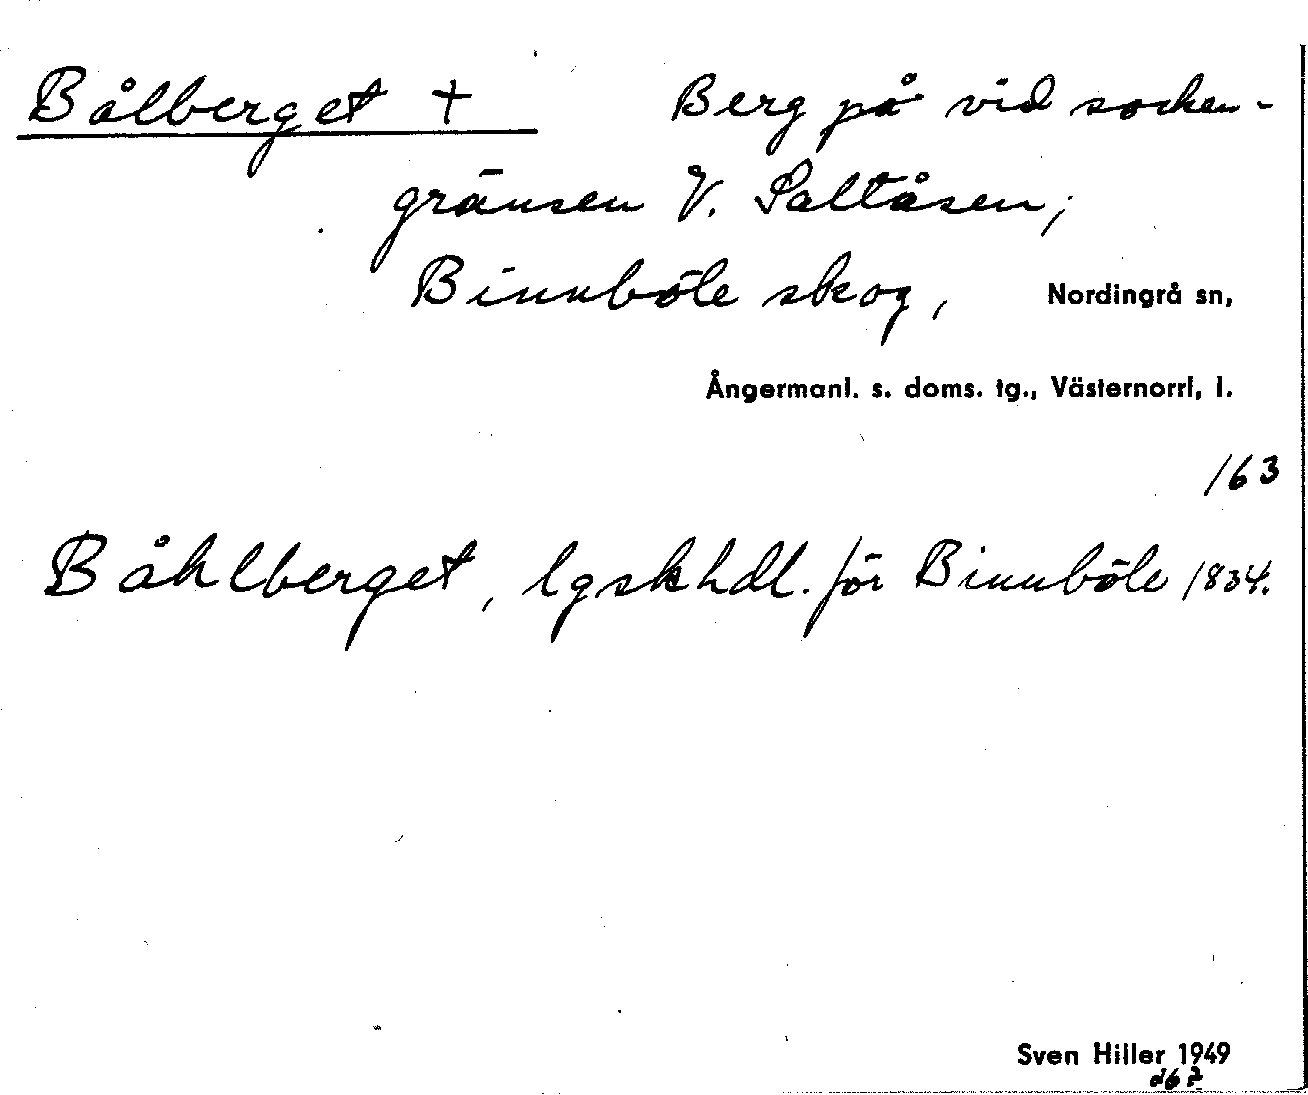 Bålberget + Berg på vid socken-
gränsen V. Saltåsen;
Binnböle skog, Nordingrå sn,
Ångermanl. s. doms. tg., Västernorrl, l.
163
Båhlberget, lgskhdl. för Binnböle 1834.
Sven Hiller 1949